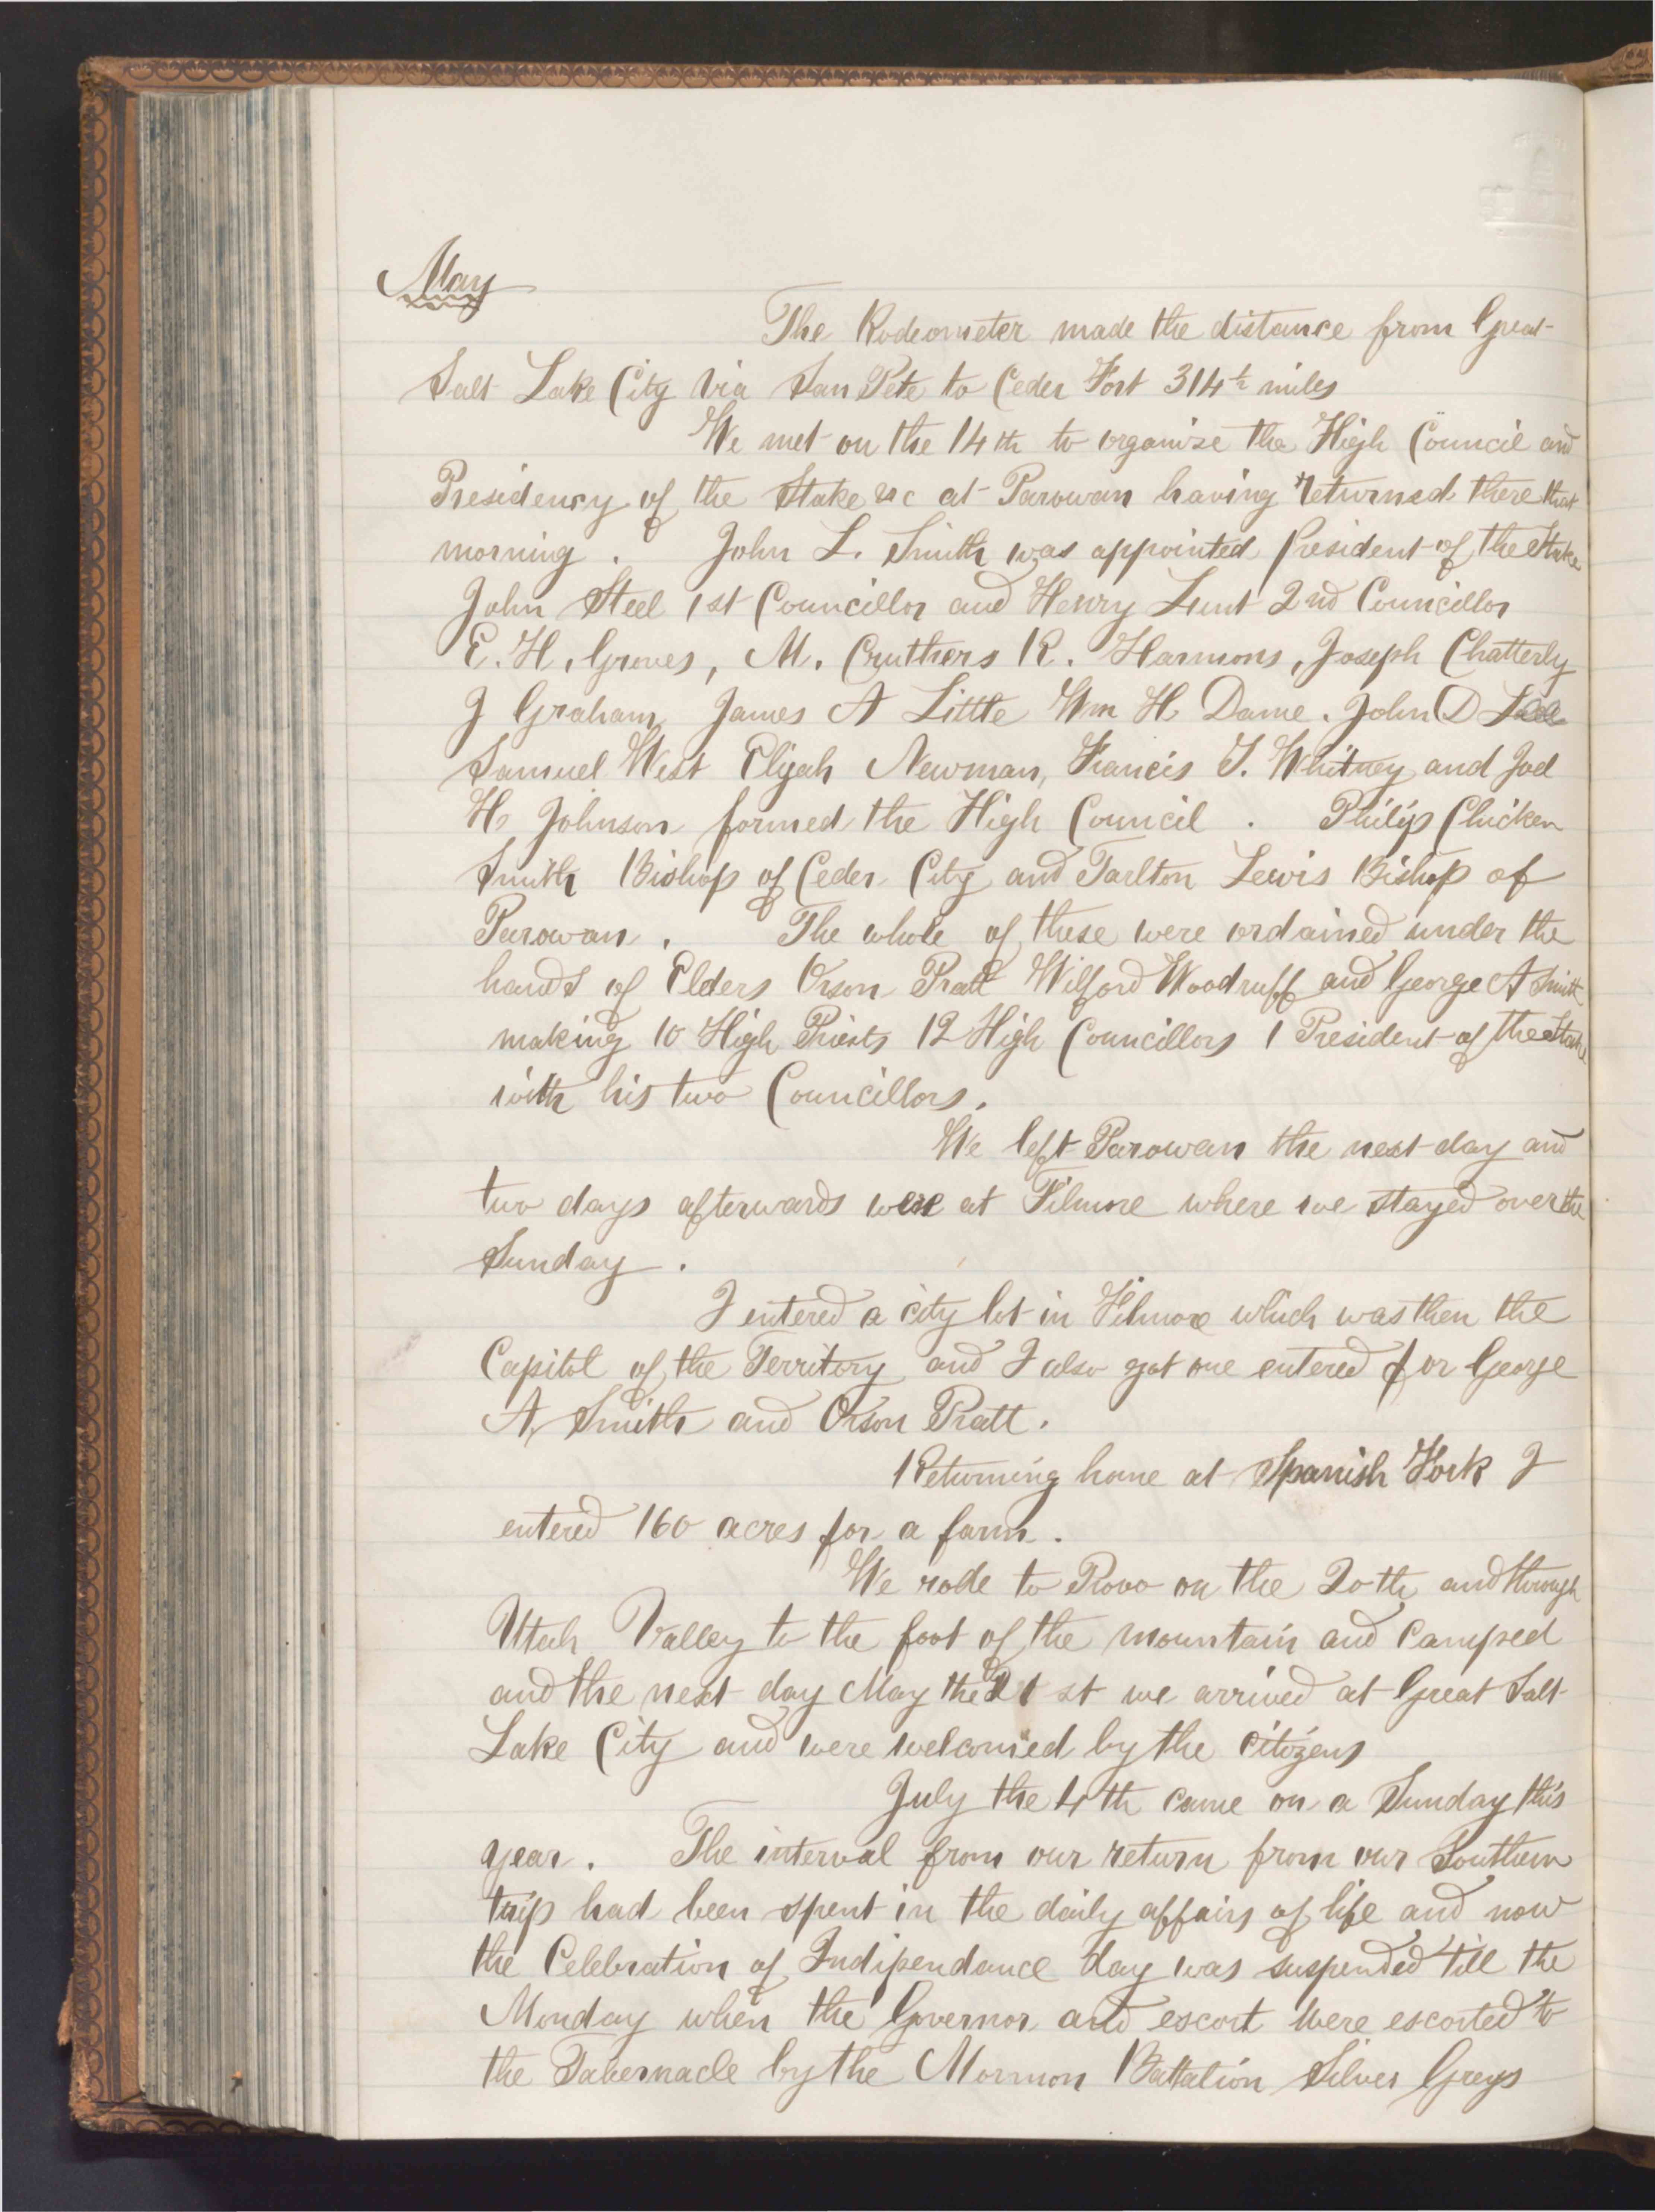 May
The Rodeometer made the distance from Great
Salt Lake City via San Pete to Ceder Fort 314½ miles
We met on the 14th to organize the High Council and
Presidency of the Stake &c at Parowan having returned there that
morning. John L. Smith was appointed President of the Stake
John Steel 1st Councillor and Henry Lunt 2nd Councillor
E. H. Groves, M. Cruthers R. Harmons, Joseph Chatterly
J Graham James A Little Wm H Dame. John D Lee
Samuel West Elijah Newman, Francis T. Whitney and Joel
H. Johnson formed the High Council. Philip Chicken
Smith Bishop of Ceder City and Tarlton Lewis Bishop of
Parowan. The whole of these were ordained under the
hands of Elders Orson Pratt Wilford Woodruff and George A Smith
making 10 High Priests 12 High Councillors 1 President of the Stake
with his two Councillors.
We left Parowan the next day and
two days afterwards were at Filmore where we stayed over the
Sunday.
I entered a city lot in Filmore which was then the
Capitol of the Territory and I also got one entered for George
A. Smith and Orson Pratt.
Returning home at Spanish Fork I
entered 160 acres for a farm.
We rode to Provo on the 20th and through
Utah Valley to the foot of the mountain and camped
and the next day May the 21st we arrived at Great Salt
Lake City and were welcomed by the citizens
July the 4th came on a Sunday this
year. The interval from our return from our Southern
trip had been spent in the daily affairs of life and now
the Celebration of Indipendance day was suspended till the
Monday when the Governor and escort were escorted to
the Tabernacle by the Mormon Battalion Silver Greys